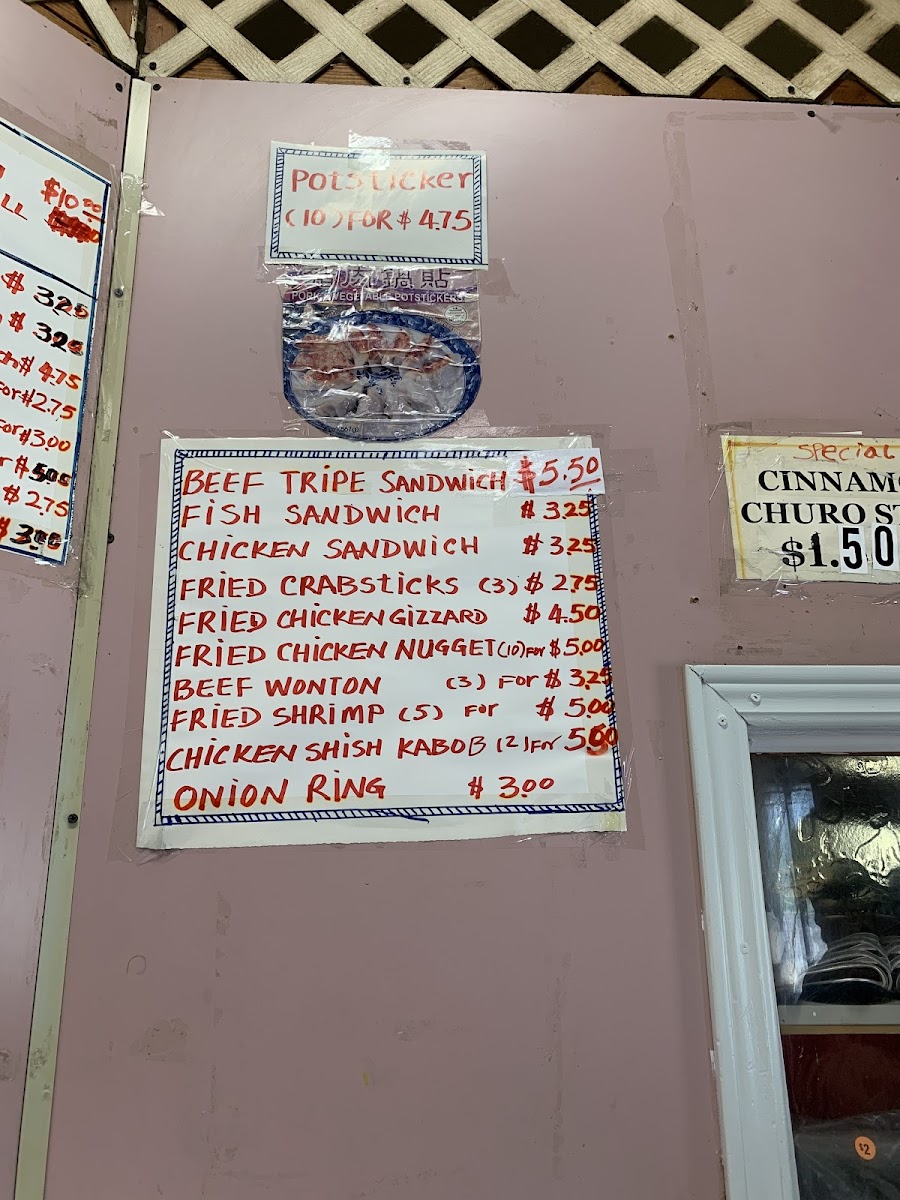 $10.00
LL
$ 3.25
$ 3.25
ch$ 4.75
For$2.75
For$3.00
r $5.05
$ 2.75
$ 3.00
Potsticker
(10) FOR $ 4.75
鍋貼
PORK & VEGETABLE POTSTICKERS
BEEF TRIPE SANDWICH $5.50
FISH SANDWICH $ 3.25
CHICKEN SANDWICH $ 3.25
FRIED CRABSTICKS (3) $ 2.75
FRIED CHICKEN GIZZARD $ 4.50
FRIED CHICKEN NUGGET (10) FOR $ 5.00
BEEF WONTON (3) FOR $ 3.25
FRIED SHRIMP (5) For $ 5.00
CHICKEN SHISH KABOB (2) For 5.00
ONION RING $ 3.00
Special
CINNAMO
CHURO ST
$1.50
$2